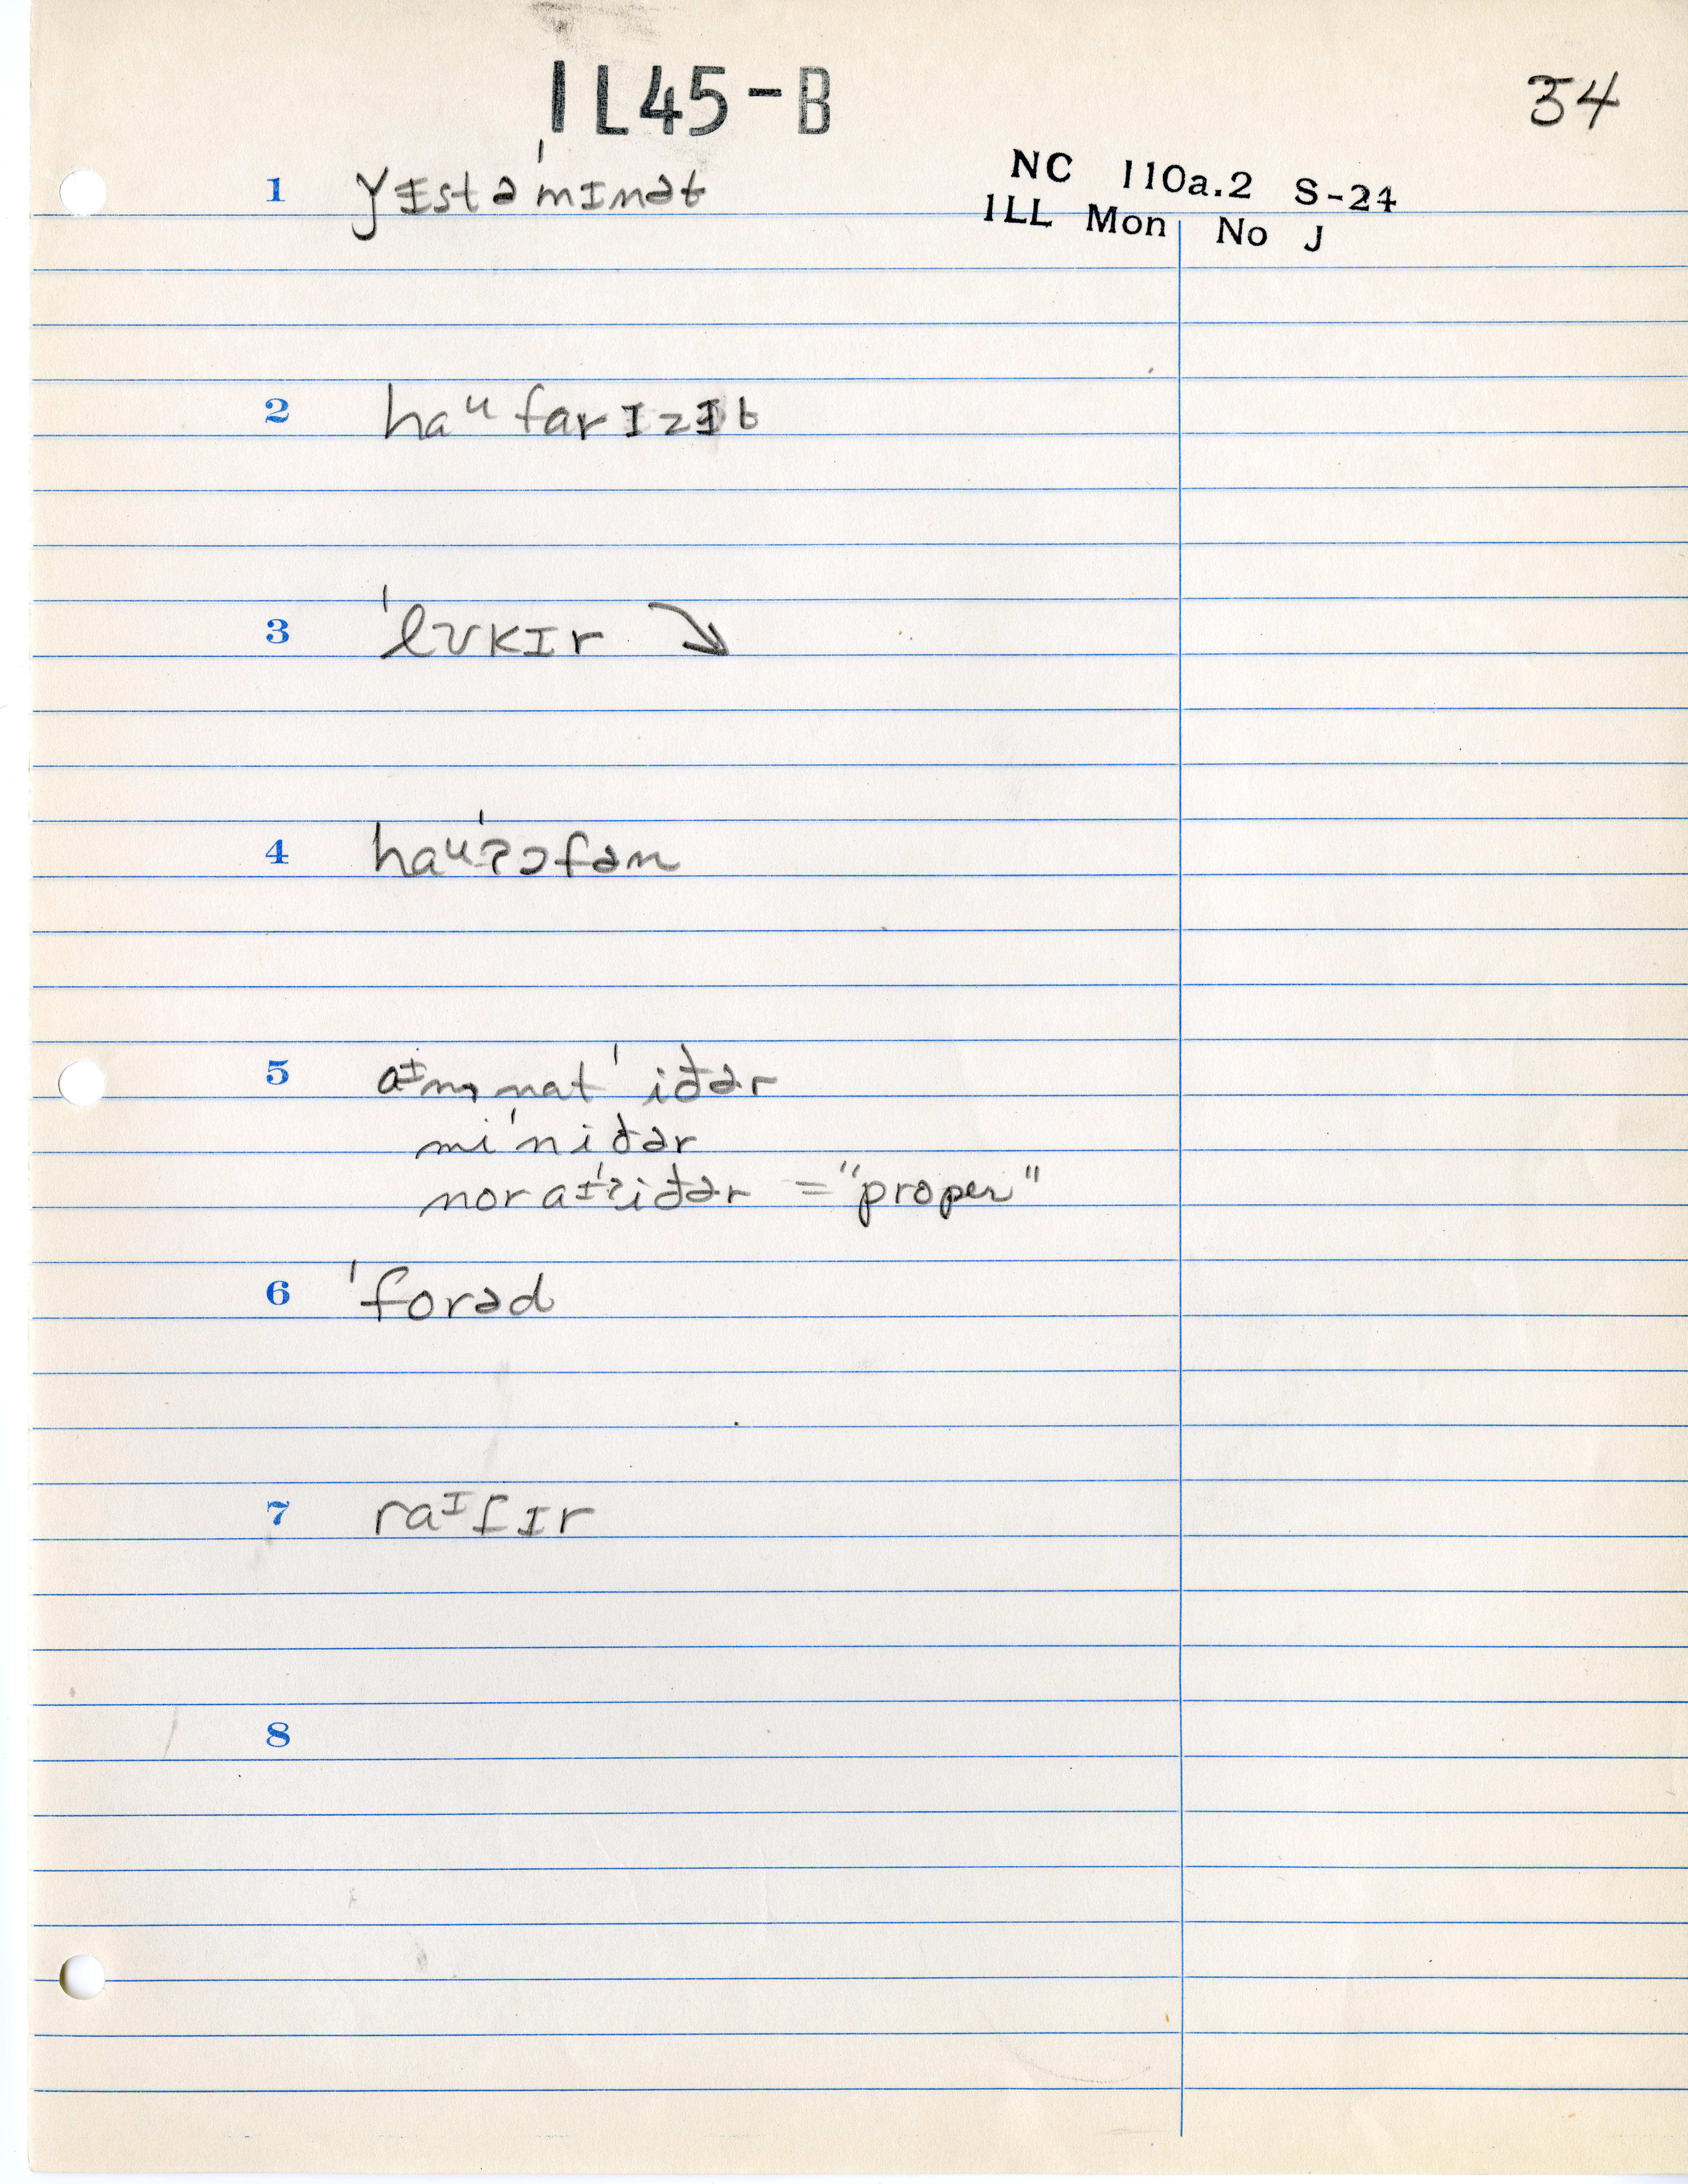 1L45-B
54
NC 110a.2 S-24
ILL Mon No J
1 yɪstəˈmɪnət
2 haᵘ farɪzɪt
3 ˈlʊkɪr ↘
4 haᵘˈʔɔfən
5 aᵻm, natˈ iðər
miˈniðər
noraᵻˈʔiðər = "proper"
6 ˈforəd
7 raᶦfɪr
8